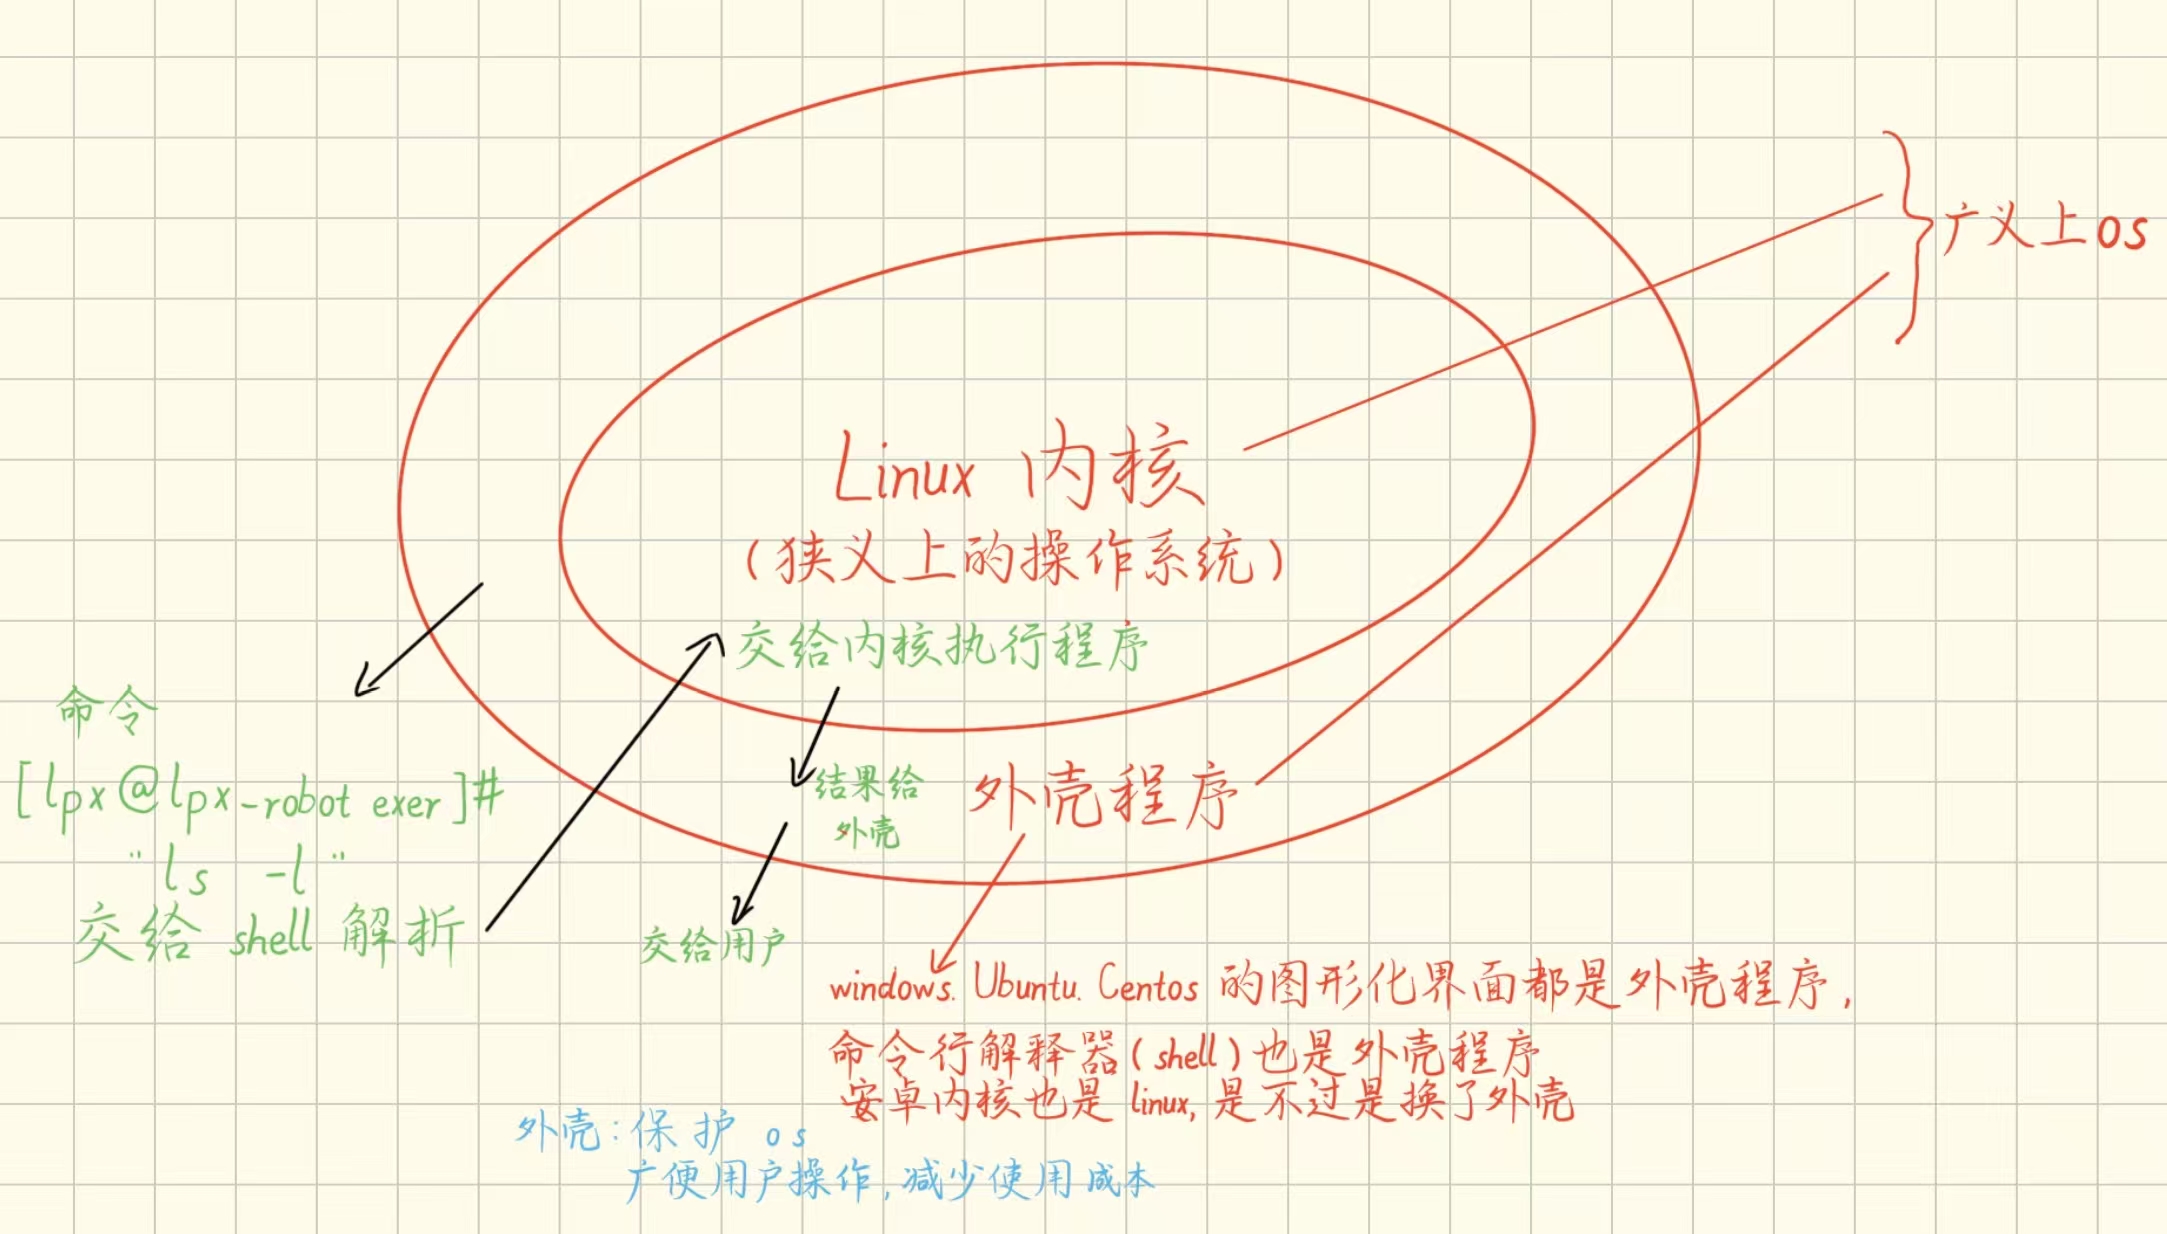 广义上os
Linux 内核
(狭义上的操作系统)
交给内核执行程序
命令
[lpx@lpx-robot exer]#
"ls -l"
交给 shell 解析
结果给
外壳
外壳程序
交给用户
windows. Ubuntu. Centos 的图形化界面都是外壳程序,
命令行解释器(shell)也是外壳程序
安卓内核也是 linux, 是不过是换了外壳
外壳:保护 os
广便用户操作,减少使用成本